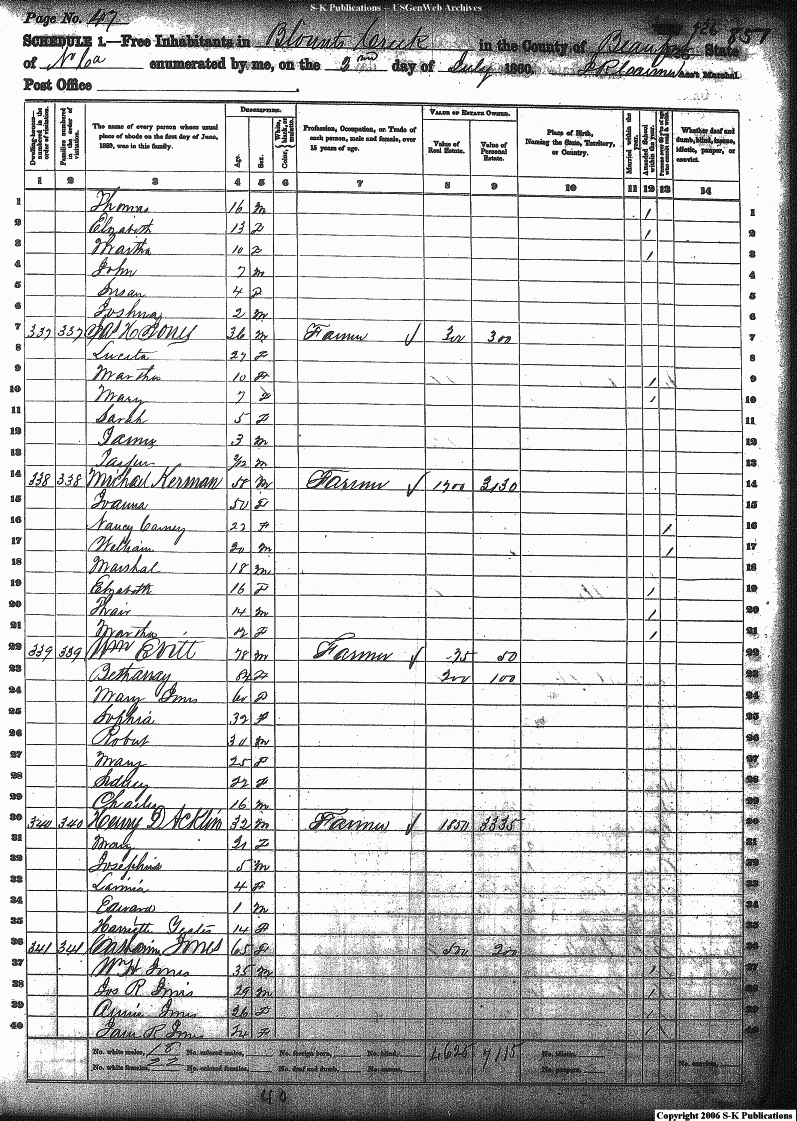 S-K Publications – USGenWeb Archives
Page No. 47
426 851
SCHEDULE 1.—Free Inhabitants in Blounts Creek in the County of Beaufort State
of No Ca enumerated by me, on the 2nd day of July 1860. Ass't Marshal.
Post Office
Dwelling-houses—numbered in the order of visitation.
Families numbered in the order of visitation.
The name of every person whose usual place of abode on the first day of June, 1860, was in this family.
DESCRIPTION.
Age.
Sex.
Color, {White, black, or mulatto.
Profession, Occupation, or Trade of each person, male and female, over 15 years of age.
VALUE OF ESTATE OWNED.
Value of Real Estate.
Value of Personal Estate.
Place of Birth, Naming the State, Territory, or Country.
Married within the year.
Attended School within the year.
Persons over 20 y'rs of age who cannot read & write.
Whether deaf and dumb, blind, insane, idiotic, pauper, or convict.
1 2 3 4 5 6 7 8 9 10 11 12 13 14
1 Thomas 16 m / 1
2 Elizabeth 13 F / 2
3 Martha 10 F / 3
4 John 7 m 4
5 Susan 4 F 5
6 Joshua 2 m 6
7 337 337 Jas H Jones 36 m Farmer 300 300 7
8 27 F 8
9 Martha 10 F / 9
10 Mary 7 F / 10
11 Sarah 5 F 11
12 James 3 m 12
13 m 13
14 338 338 Michael Kerman 58 m Farmer 1700 3130 14
15 Joanna 50 F 15
16 Nancy Carney 22 F / 16
17 20 m / 17
18 Marshal 18 m 18
19 Elizabeth 16 F / 19
20 14 m / 20
21 Martha 12 F / 21
22 339 339 Wm 78 m Farmer 75 50 22
23 F 200 100 23
24 Mary 60 F 24
25 Sophia 32 F 25
26 Robert 30 m 26
27 Mary 25 F 27
28 Sidney 22 F 28
29 Charles 16 m 29
30 340 340 Henry D Acklin 32 m Farmer 1850 3335 30
31 Mary 21 F 31
32 5 m 32
33 4 F 33
34 Edward 1 m 34
35 14 F 35
36 341 341 Jones 65 F 500 200 36
37 Wm H 35 m / 37
38 Jos R 29 m / 38
39 26 F / 39
40 24 F / 40
No. white males, 18 No. colored males, No. foreign born, No. blind, 4625 7115 No. idiotic,
No. white females, 22 No. colored females, No. deaf and dumb, No. insane, No. paupers, No. convicts,
40
Copyright 2006 S-K Publications